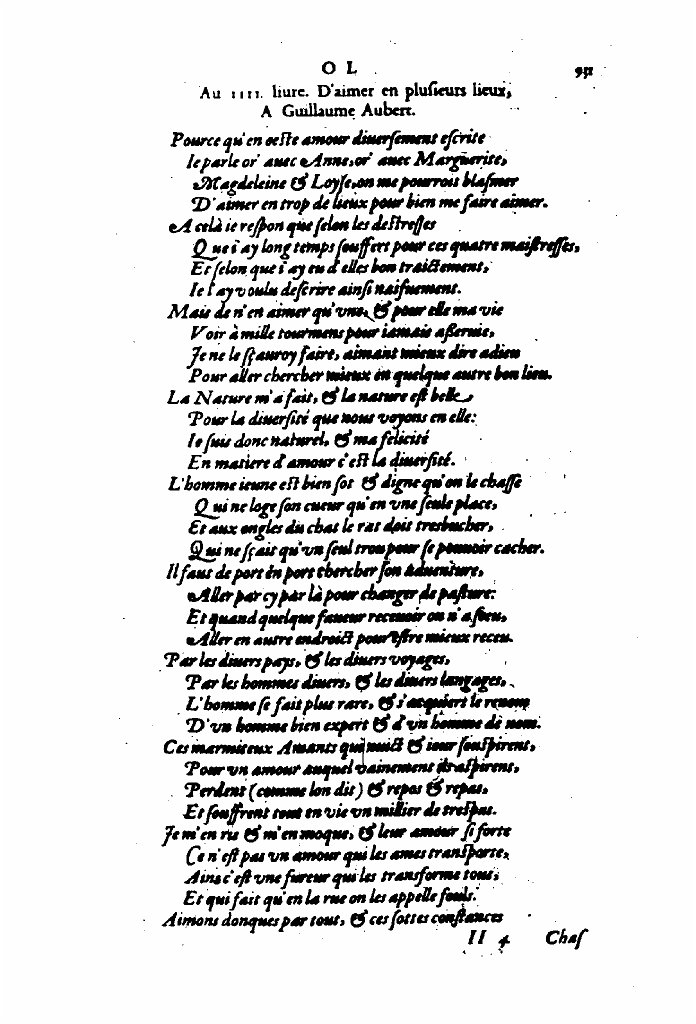 O L 931
Au IIII. liure. D'aimer en pluſieurs lieux,
A Guillaume Aubert.
Pource qu'en ceſte amour diuerſement eſcrite
Ie parle or' auec Anne, or' auec Marguerite,
Magdeleine & Loyſe, on me pourroit blaſmer
D'aimer en trop de lieux pour bien me faire aimer.
A celà ie reſpon que ſelon les deſtreſſes
Que i'ay long temps ſouffert pour ces quatre maiſtreſſes,
Et ſelon que i'ay eu d'elles bon traictement,
Ie l'ay voulu deſcrire ainſi naifuement.
Mais de n'en aimer qu'vne, & pour elle ma vie
Voir à mille tourmens pour iamais aſſeruie,
Je ne le ſçauroy faire, aimant mieux dire adieu
Pour aller chercher mieux en quelque autre bon lieu.
La Nature m'a fait, & la nature eſt belle
Pour la diuerſité que nous voyons en elle:
Ie ſuis donc naturel, & ma felicité
En matiere d'amour c'eſt la diuerſité.
L'homme ieune eſt bien ſot & digne qu'on le chaſſe
Qui ne loge ſon cueur qu'en vne ſeule place,
Et aux ongles du chat le rat doit tresbucher,
Qui ne ſçait qu'vn ſeul trou pour ſe pouuoir cacher.
Il faut de port en port chercher ſon aduenture,
Aller par cy par là pour changer de paſture:
Et quand quelque faueur receuoir on n'a ſceu,
Aller en autre endroict pour eſtre mieux receu.
Par les diuers pays, & les diuers voyages,
Par les hommes diuers, & les diuers langages,
L'homme ſe fait plus rare, & s'acquiert le renom
D'vn homme bien expert & d'vn homme de nom.
Ces marmiteux Amants qui nuict & iour ſouſpirent,
Pour vn amour auquel vainement ils aſpirent,
Perdent (comme lon dit) & repas & repas,
Et ſouffrent tout en vie vn millier de treſpas.
Je m'en ris & m'en moque, & leur amour ſi forte
Ce n'eſt pas vn amour qui les ames tranſporte,
Ains c'eſt vne fureur qui les transforme tous,
Et qui fait qu'en la rue on les appelle fouls.
Aimons donques par tout, & ces ſottes conſtances
II 4 Chaſ